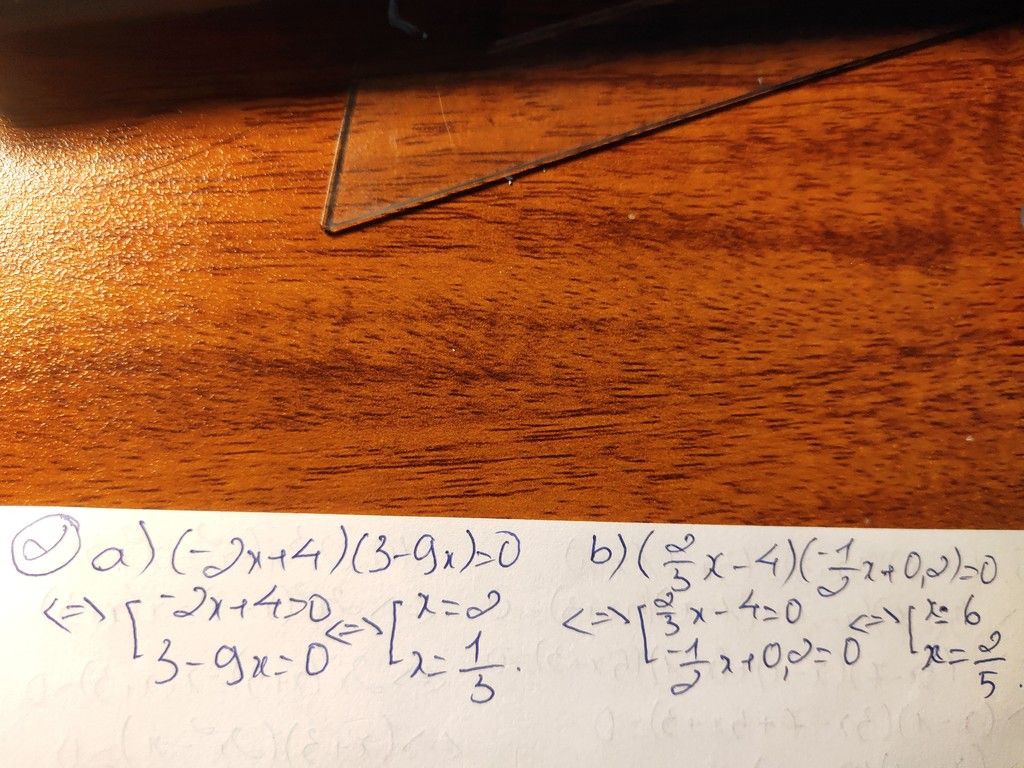 ② a) (-2x+4)(3-9x)=0
<=> [ -2x+4=0 <=> [ x=2
3-9x=0 x=1/3.
b) (2/3x-4)(-1/2x+0,2)=0
<=> [ 2/3x-4=0 <=> [ x=6
-1/2x+0,2=0 x=2/5.